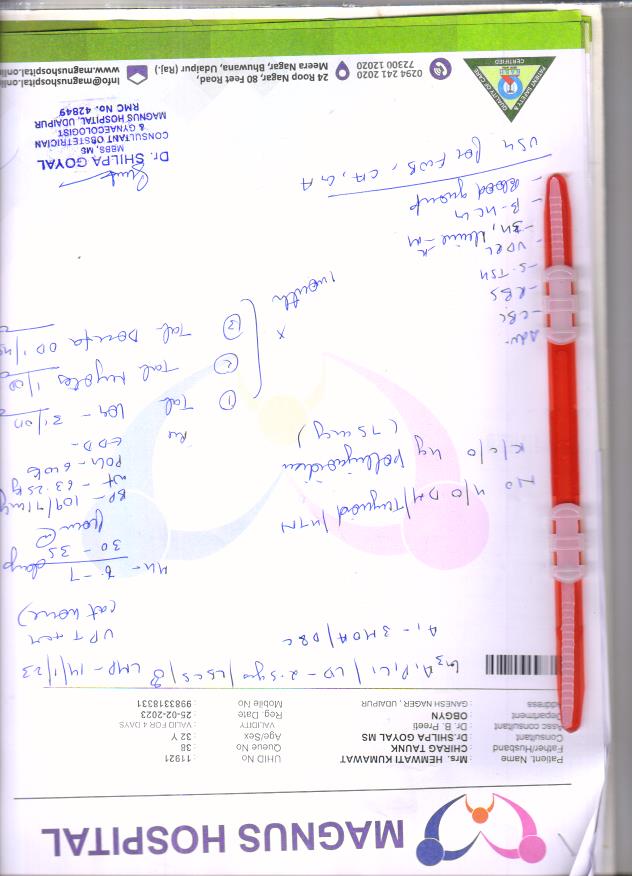 MAGNUS HOSPITAL
Patient. Name : Mrs. HEMWATI KUMAWAT
UHID No : 11921
Father/Husband : CHIRAG TAUNK
Queue No : 38
Consultant : Dr.SHILPA GOYAL MS
Age/Sex : 32 Y
Assc consultant : Dr. B. Preeti
VALIDITY : VALID FOR 4 DAYS
Department : OBGYN
Reg. Date : 25-02-2023
Address : GANESH NAGER , UDAIPUR
Mobile No : 9983318331
A1 P1 L1 / LD - 2.5 yrs / LSCS / LMP - 14/1/23
A1 - 3 MOA / D&C
UPT +ve
(at home)
MH - 6-7 days
30 - 35
No H/O DM / Thyroid / HTN
K/C/O
(75 mcg)
BP - 109/71
wt - 63.25 kg
POG - 6 wks
EDD -
Rx
① Tab
② Tab
③ Tab OD
x 1 month
Adv -
- CBC
- RBS
- S. TSH
- VDRL
- Urine - R M
- B - HCG
- Blood group
USG for FWB, CA, GA
Dr. SHILPA GOYAL
MBBS, MS
CONSULTANT OBSTETRICIAN
& GYNAECOLOGIST
MAGNUS HOSPITAL, UDAIPUR
RMC No. 42849
PATIENT SAFETY &
QUALITY OF CARE
CERTIFIED
0294 241 2020
72300 12020
24 Roop Nagar, 80 Feet Road,
Meera Nagar, Bhuwana, Udaipur (Raj.)
info@magnushospital.onli
www.magnushospital.onlin